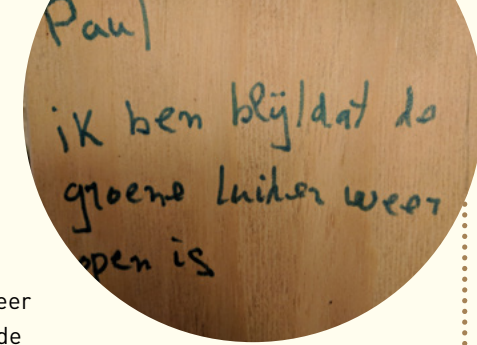 Paul
ik ben blij dat de
groene luiken weer
open is
eer
de